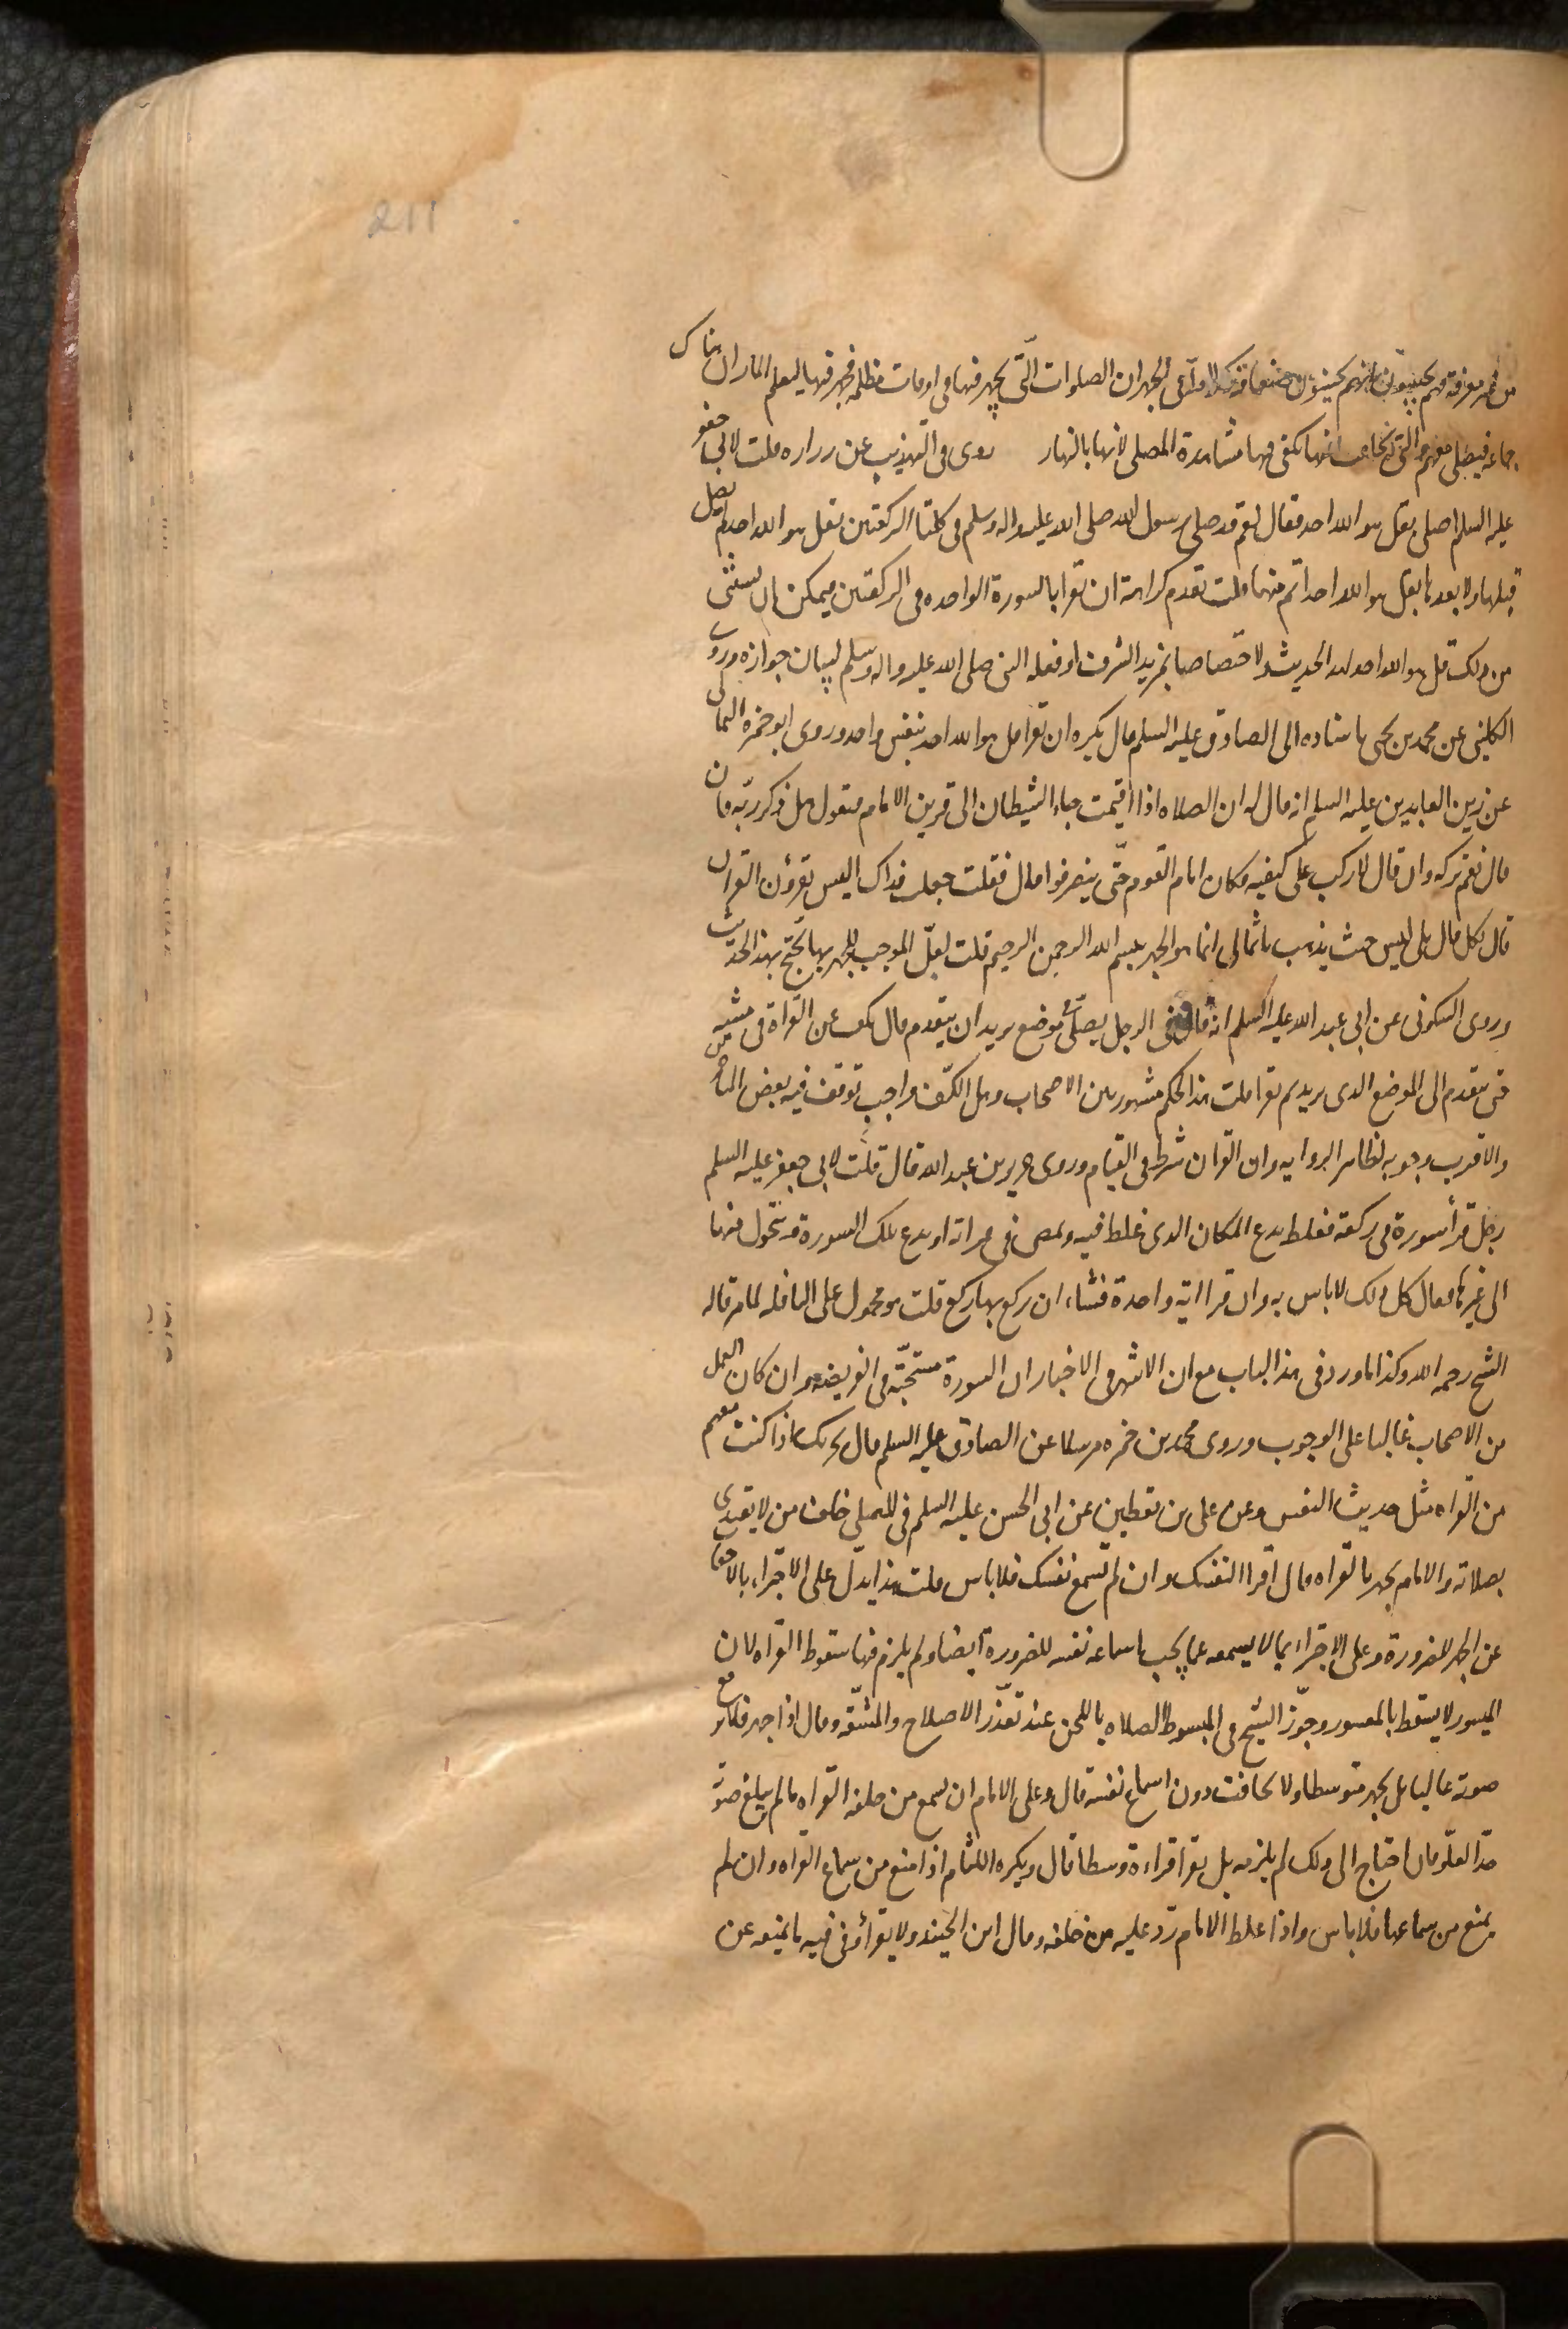 211
من غير معرفة فهم يجيبون بانهم يجيئون الجهر ان الصلوات التى يجهر فيها فى اوقات مظلمه فجهر فيها ليعلم المار ان هناك
جماعه فيصلى معهم والتى يخافت فيها يكفى فيها مشاهدة المصلى لانها بالنهار روى فى التهذيب عن زراره قلت لابى جعفر
عليه السلم اصلى بقل هو الله احد فقال نعم قد صلى رسول الله صلى الله عليه واله وسلم فى كلتا الركعتين بقل هو الله احد لم يصل
قبلها ولا بعدها بقل هو الله احد اتم منها قلت تقدم كراهة ان تقرا بالسورة الواحده فى الركعتين فيمكن ان يستثنى
من ذلك قل هو الله احد لهذا الحديث ولاختصاصها بمزيد الشرف او فعله النبى صلى الله عليه واله وسلم لبيان جوازه وروى
الكلينى عن محمد بن يحيى باسناده الى الصادق عليه السلم قال يكره ان تقرا قل هو الله احد بنفس واحد وروى ابو حمزه الثمالى
عن زين العابدين عليه السلم انه قال له ان الصلاه اذا اقيمت جاء الشيطان الى قرين الامام فيقول هل ذكر ربه فان
قال نعم تركه وان قال لا ركب على كتفيه فكان امام القوم حتى ينصرفوا قال فقلت جعلت فداك اليس يقرؤن القران
قال بلى قال بلى ليس حيث يذهب يا ثمالى انما هو الجهر ببسم الله الرحمن الرحيم قلت لعل الموجب للجهر بها يحتج بهذا الحديث
وروى السكونى عن ابى عبد الله عليه السلم انه قال فى الرجل يصلى فى موضع يريد ان يتقدم قال يكف عن القراة فى مشيه
حتى يتقدم الى الموضع الذى يريد ثم يقرا قلت هذا الحكم مشهور بين الاصحاب وهل الكف واجب توقف فيه بعض المتاخرين
والاقرب وجوبه لظاهر الروايه وان القران شرط فى القيام وروى حريز بن عبد الله قال قلت لابى جعفر عليه السلم
رجل قرأ سورة فى ركعة فغلط يدع المكان الذى غلط فيه ويمضى فى قراته او يدع تلك السورة ويتحول منها
الى غيرها فقال كل ذلك لا باس به وان قرا اية واحدة فشاء ان يركع بها ركع قلت هو محمول على النافله لما مر قاله
الشيخ رحمه الله وكذا ما ورد فى هذا الباب مع ان الاشهر فى الاخبار ان السورة مستحبة فى الفريضة وان كان العمل
من الاصحاب غالبا على الوجوب وروى محمد بن حمزه مرسلا عن الصادق عليه السلم قال يجزيك اذا كنت معهم
من القراه مثل حديث النفس وعن على بن يقطين عن ابى الحسن عليه السلم فى المصلى خلف من لا يقتدى
بصلاته والامام يجهر بالقراه قال اقرا لنفسك وان لم تسمع نفسك فلا باس قلت هذا يدل على الاجتزاء بالاخفات
عن الجهر للضرورة وعلى الاجتزاء بما لا يسمعه عما يجب اسماعه نفسه للضرورة ايضا ولم يلزم فيها سقوط القراه لان
الميسور لا يسقط بالمعسور وجوّز الشيخ فى المبسوط الصلاه باللحن عند تعذر الاصلاح والمشقه وقال اذا جهر فلا يرفع
صوته عاليا بل يجهر متوسطا ولا يخافت دون اسماع نفسه قال وعلى الامام ان يسمع من خلفه القراه ما لم يبلغ صوته
حد العلو فان احتاج الى ذلك لم يلزمه بل يقرا قراءة وسطا قال ويكره اللثام اذا منع من سماع القراه وان لم
يمنع من سماعها فلا باس واذا غلط الامام رد عليه من خلفه وقال ابن الجنيد ولا يقرأ وفى فيه ما يمنعه عن